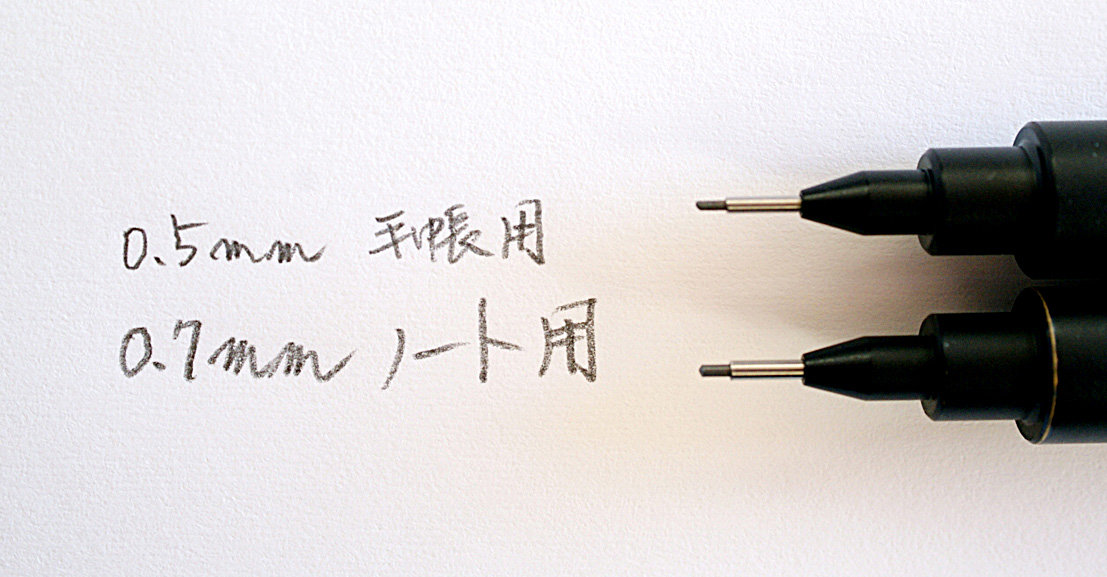 0.5mm 手帳用
0.7mm ノート用